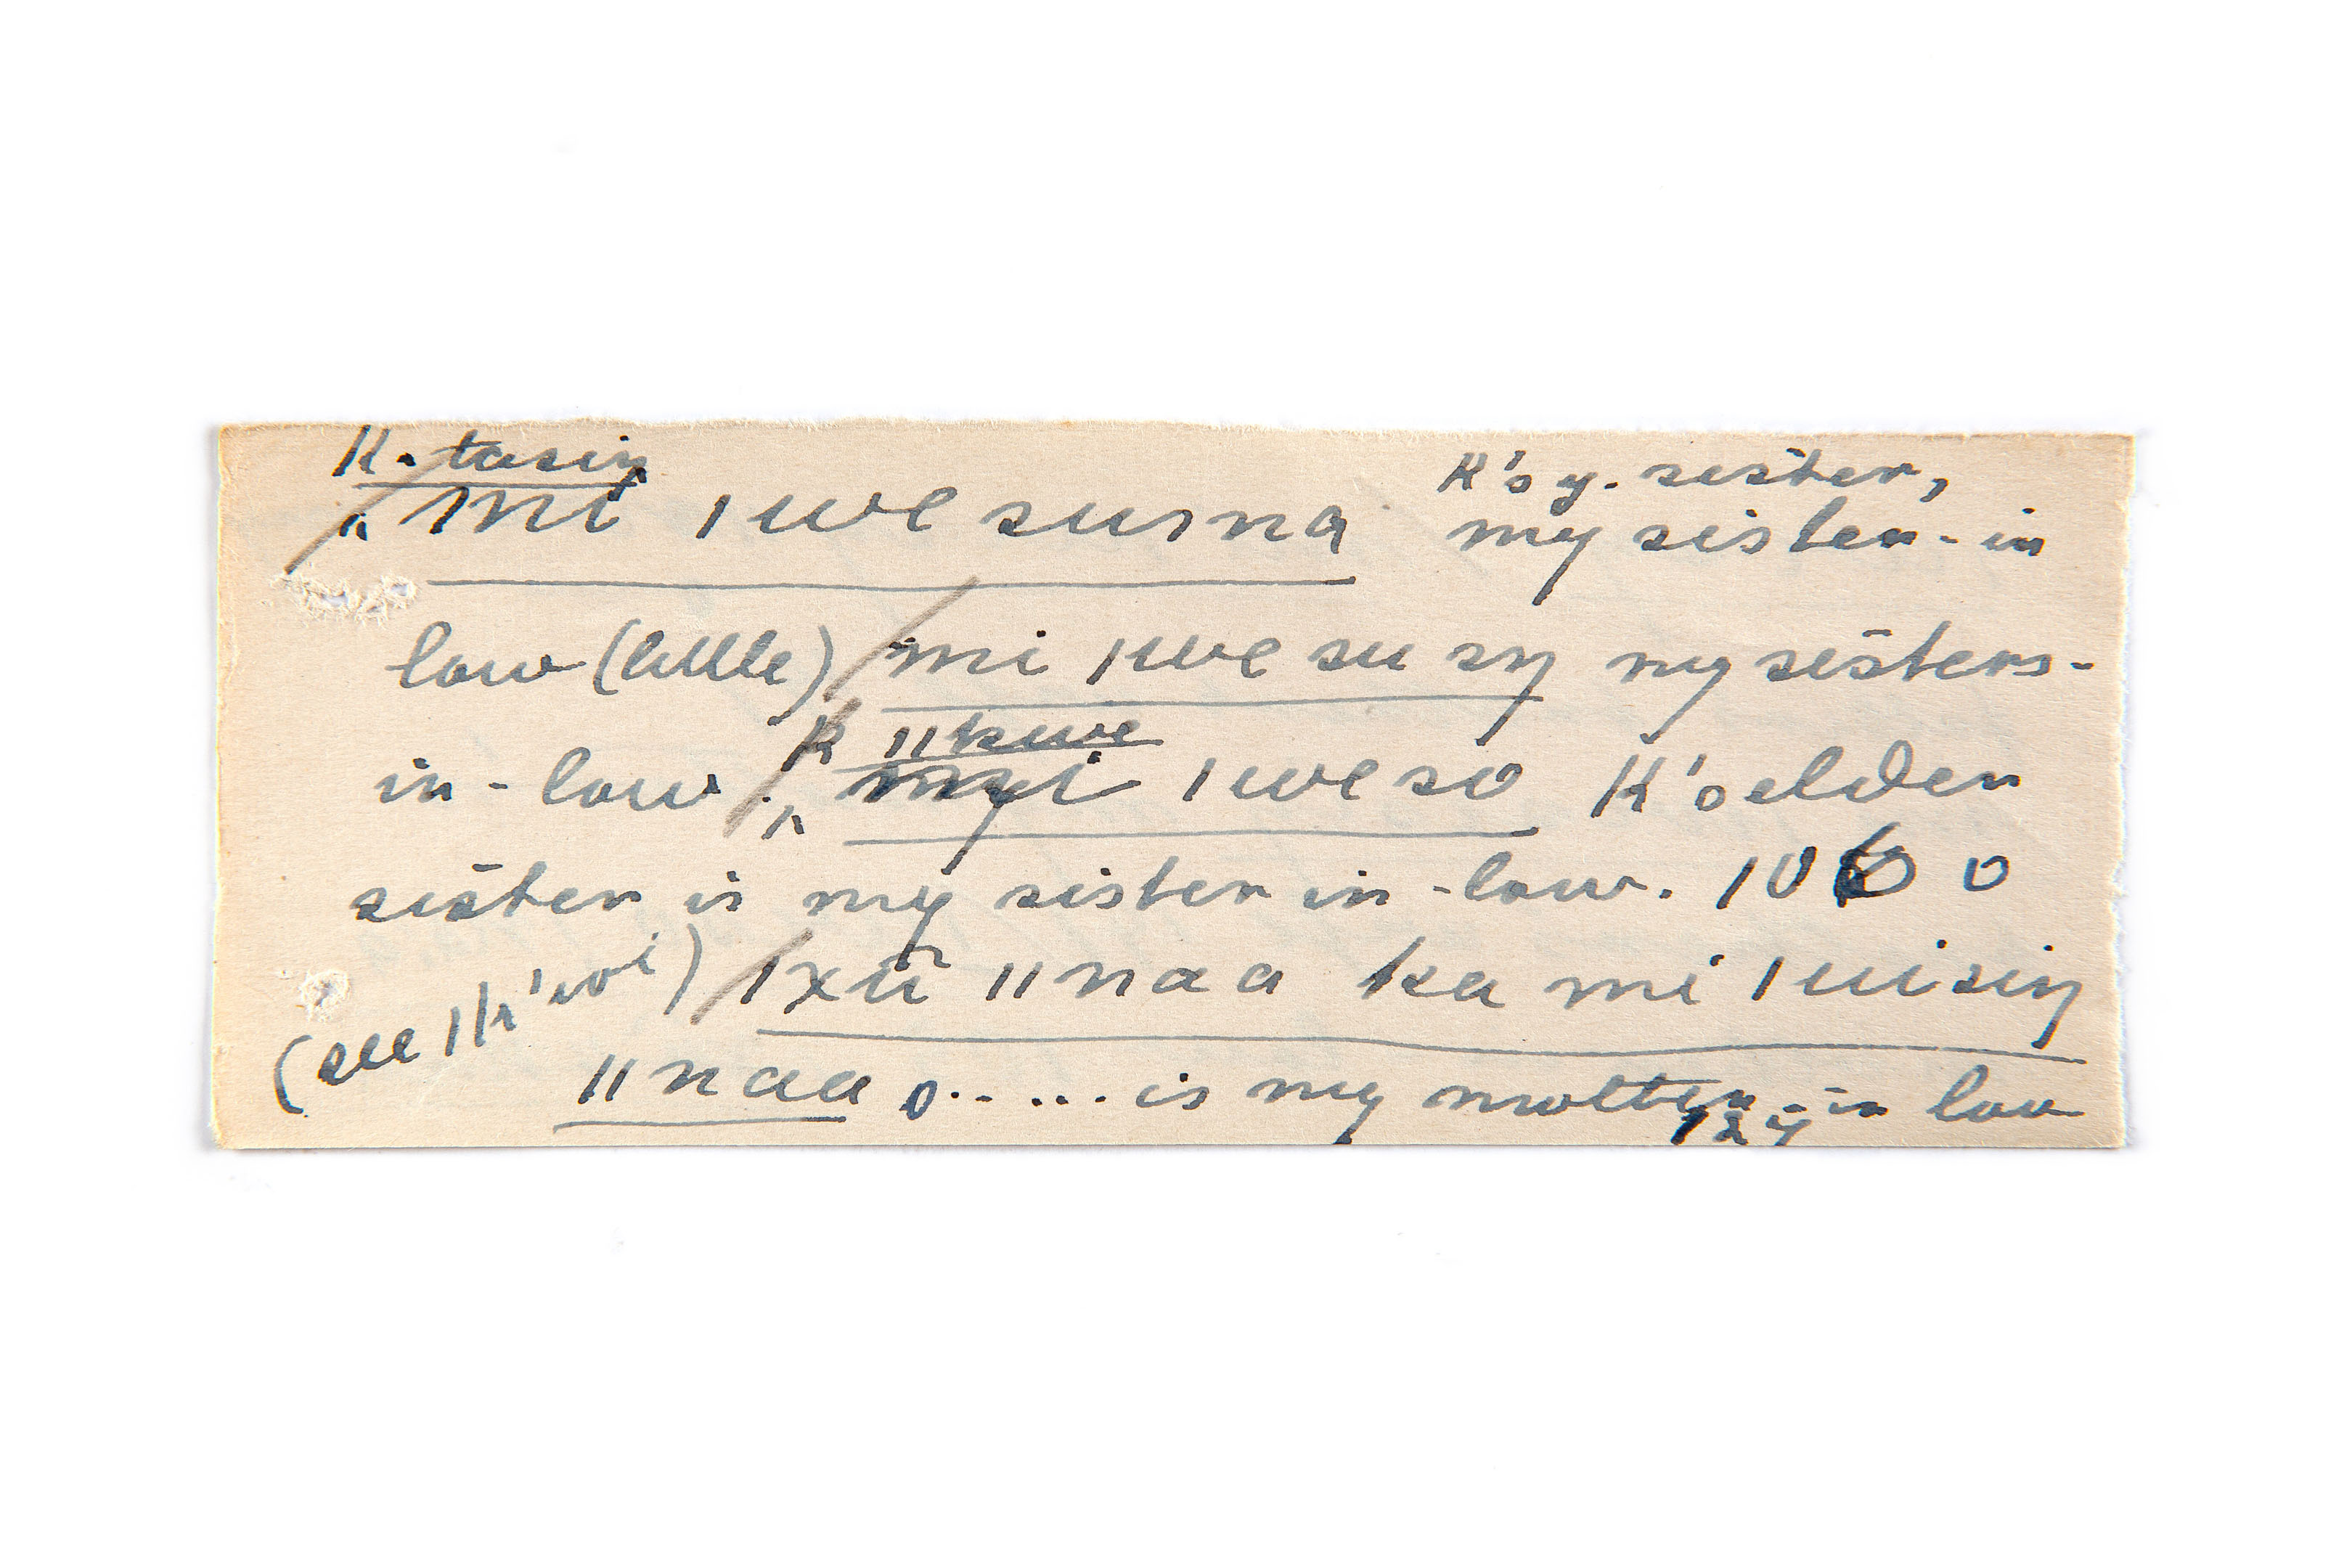 K. tasiŋ
mi ǀwe suǀna K's y. sister,
my sister-in
law (little) mi ǀwe su sŋ my sisters-
K ǁkwe
in-law. ǀweso K's elder
sister is my sister in-law. 10 0
(see ) ǀxū ǁnaa ka mi ǀuisiŋ
ǁnaa o..... is my mother-in law